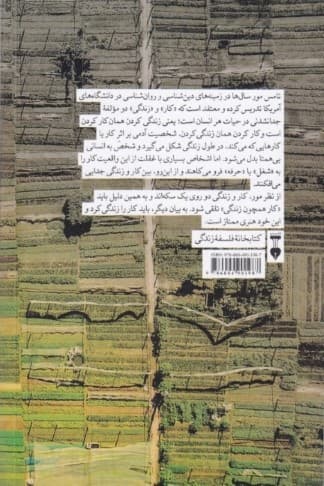 تامس مور سال‌ها در زمینه‌های دین‌شناسی و روان‌شناسی در دانشگاه‌های
آمریکا تدریس کرده و معتقد است که «کار» و «زندگی» دو مؤلفهٔ
جدانشدنی در حیات هر انسان است؛ یعنی زندگی کردن همان کار کردن
است و کار کردن همان زندگی کردن. شخصیت آدمی بر اثر کار یا
کارهایی که می‌کند، در طول زندگی شکل می‌گیرد و شخص به انسانی
بی‌همتا بدل می‌شود. اما اشخاص بسیاری با غفلت از این واقعیت کار را
به «شغل» یا «حرفه» فرو می‌کاهند و از این‌رو، بین کار و زندگی جدایی
می‌افکنند.
از نظر مور، کار و زندگی دو روی یک سکه‌اند و به همین دلیل باید
«کار همچون زندگی» تلقی شود. به بیان دیگر، باید کار را زندگی کرد و
این خود هنری ممتاز است.
کتابخانهٔ فلسفهٔ زندگی